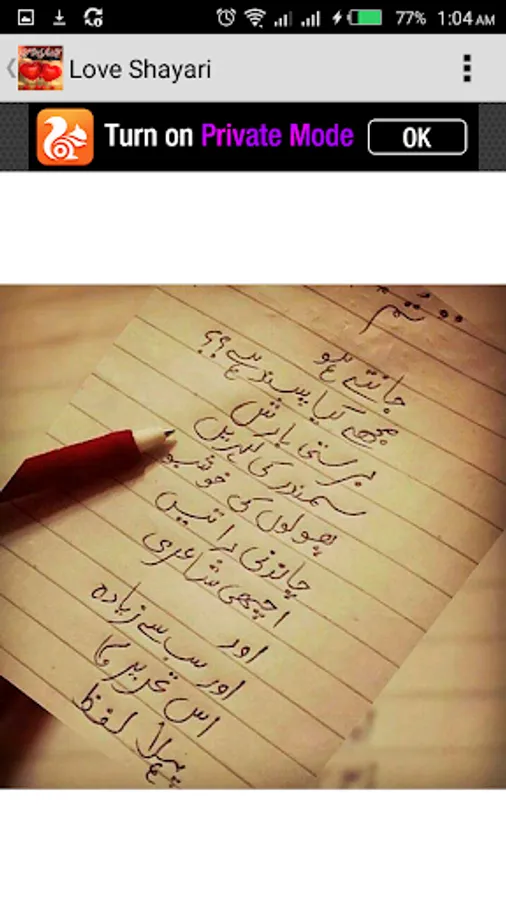 77% 1:04 AM
Love Shayari
Turn on Private Mode OK
تم
جانتے ہو
مجھے کیا پسند ہے؟؟
برستی بارش
سمندر کی لہریں
پھولوں کی خوشبو
چاندنی راتیں
اچھی شاعری
اور
اور سب سے زیادہ
اس تحریر کا
پہلا لفظ